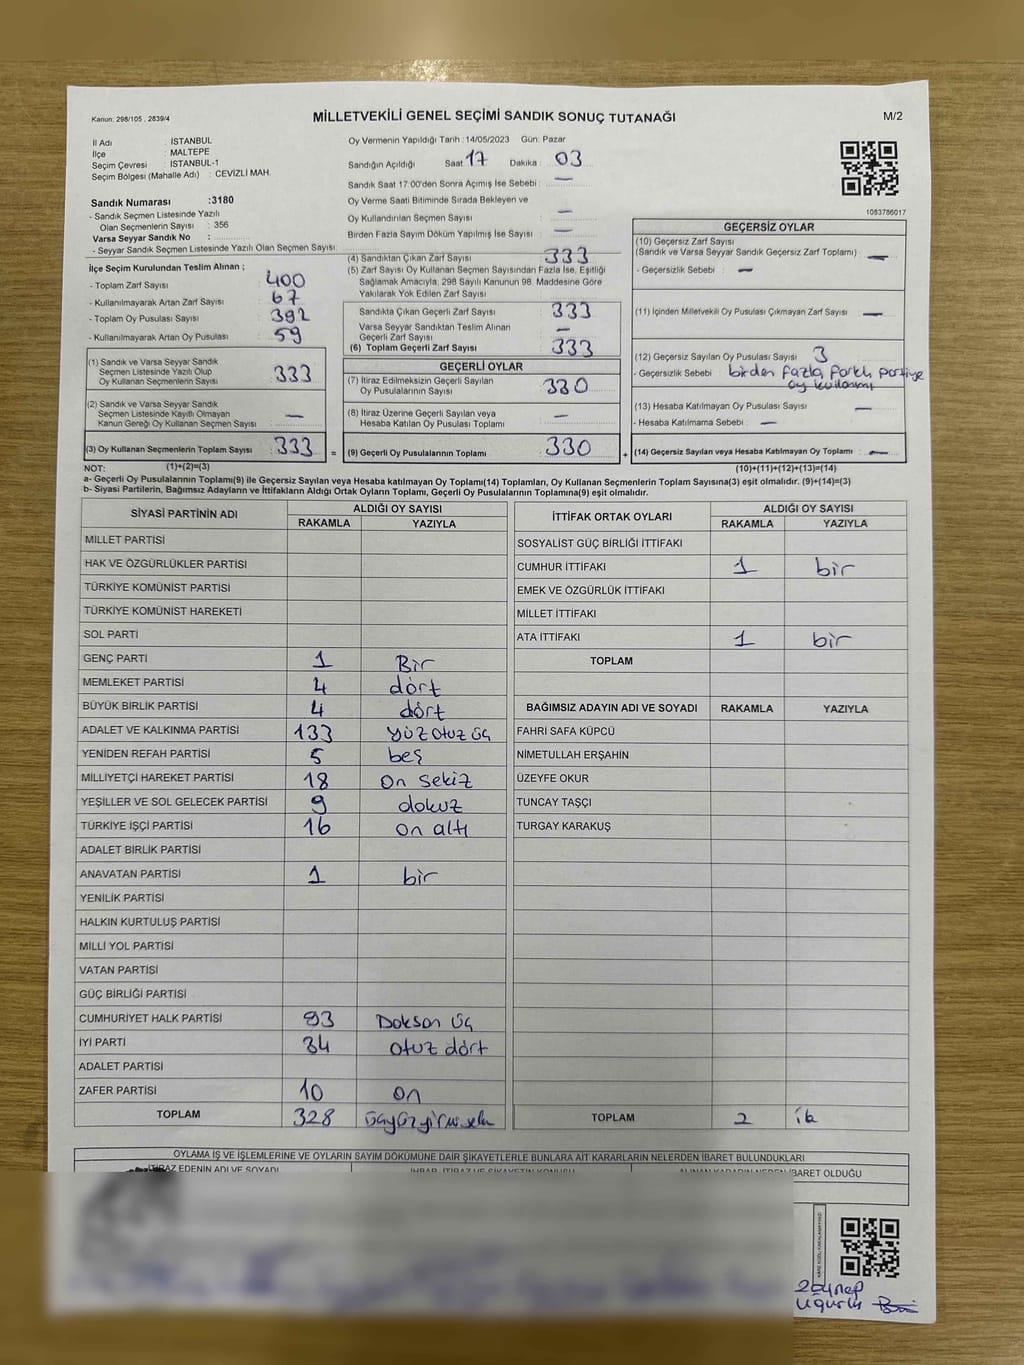 Kanun: 298/105 , 2839/4
MİLLETVEKİLİ GENEL SEÇİMİ SANDIK SONUÇ TUTANAĞI
M/2
İl Adı : İSTANBUL
İlçe : MALTEPE
Seçim Çevresi : İSTANBUL-1
Seçim Bölgesi (Mahalle Adı) : CEVİZLİ MAH.
Oy Vermenin Yapıldığı Tarih : 14/05/2023 Gün: Pazar
Sandığın Açıldığı Saat 17 Dakika : 03
Sandık Saat 17:00'den Sonra Açımış İse Sebebi : —
Oy Verme Saati Bitiminde Sırada Bekleyen ve
Oy Kullandırılan Seçmen Sayısı : —
Birden Fazla Sayım Döküm Yapılmış İse Sayısı : —
Sandık Numarası :3180
- Sandık Seçmen Listesinde Yazılı
Olan Seçmenlerin Sayısı : 356
Varsa Seyyar Sandık No :
- Seyyar Sandık Seçmen Listesinde Yazılı Olan Seçmen Sayısı:
1083786017
İlçe Seçim Kurulundan Teslim Alınan ;
- Toplam Zarf Sayısı : 400
- Kullanılmayarak Artan Zarf Sayısı : 67
- Toplam Oy Pusulası Sayısı : 392
- Kullanılmayarak Artan Oy Pusulası : 59
(1) Sandık ve Varsa Seyyar Sandık
Seçmen Listesinde Yazılı Olup
Oy Kullanan Seçmenlerin Sayısı : 333
(2) Sandık ve Varsa Seyyar Sandık
Seçmen Listesinde Kayıtlı Olmayan
Kanun Gereği Oy Kullanan Seçmen Sayısı : —
(3) Oy Kullanan Seçmenlerin Toplam Sayısı : 333 =
(4) Sandıktan Çıkan Zarf Sayısı : 333
(5) Zarf Sayısı Oy Kullanan Seçmen Sayısından Fazla İse, Eşitliği
Sağlamak Amacıyla, 298 Sayılı Kanunun 98. Maddesine Göre
Yakılarak Yok Edilen Zarf Sayısı :
Sandıkta Çıkan Geçerli Zarf Sayısı : 333
Varsa Seyyar Sandıktan Teslim Alınan
Geçerli Zarf Sayısı : —
(6) Toplam Geçerli Zarf Sayısı : 333
GEÇERLİ OYLAR
(7) İtiraz Edilmeksizin Geçerli Sayılan
Oy Pusulalarının Sayısı : 330
(8) İtiraz Üzerine Geçerli Sayılan veya
Hesaba Katılan Oy Pusulası Toplamı : —
(9) Geçerli Oy Pusulalarının Toplamı : 330 +
GEÇERSİZ OYLAR
(10) Geçersiz Zarf Sayısı
(Sandık ve Varsa Seyyar Sandık Geçersiz Zarf Toplamı) : —
- Geçersizlik Sebebi : —
(11) İçinden Milletvekili Oy Pusulası Çıkmayan Zarf Sayısı : —
(12) Geçersiz Sayılan Oy Pusulası Sayısı : 3
- Geçersizlik Sebebi : birden fazla farklı partiye
oy kullanımı
(13) Hesaba Katılmayan Oy Pusulası Sayısı : —
- Hesaba Katılmama Sebebi : —
(14) Geçersiz Sayılan veya Hesaba Katılmayan Oy Toplamı : —
NOT: (1)+(2)=(3) (10)+(11)+(12)+(13)=(14)
a- Geçerli Oy Pusulalarının Toplamı(9) ile Geçersiz Sayılan veya Hesaba katılmayan Oy Toplamı(14) Toplamları, Oy Kullanan Seçmenlerin Toplam Sayısına(3) eşit olmalıdır. (9)+(14)=(3)
b- Siyasi Partilerin, Bağımsız Adayların ve İttifakların Aldığı Ortak Oyların Toplamı, Geçerli Oy Pusulalarının Toplamına(9) eşit olmalıdır.
SİYASİ PARTİNİN ADI ALDIĞI OY SAYISI
RAKAMLA YAZIYLA
MİLLET PARTİSİ
HAK VE ÖZGÜRLÜKLER PARTİSİ
TÜRKİYE KOMÜNİST PARTİSİ
TÜRKİYE KOMÜNİST HAREKETİ
SOL PARTİ
GENÇ PARTİ 1 Bir
MEMLEKET PARTİSİ 4 dört
BÜYÜK BİRLİK PARTİSİ 4 dört
ADALET VE KALKINMA PARTİSİ 133 yüz otuz üç
YENİDEN REFAH PARTİSİ 5 beş
MİLLİYETÇİ HAREKET PARTİSİ 18 on sekiz
YEŞİLLER VE SOL GELECEK PARTİSİ 9 dokuz
TÜRKİYE İŞÇİ PARTİSİ 16 on altı
ADALET BİRLİK PARTİSİ
ANAVATAN PARTİSİ 1 bir
YENİLİK PARTİSİ
HALKIN KURTULUŞ PARTİSİ
MİLLİ YOL PARTİSİ
VATAN PARTİSİ
GÜÇ BİRLİĞİ PARTİSİ
CUMHURİYET HALK PARTİSİ 93 Doksan üç
İYİ PARTİ 34 otuz dört
ADALET PARTİSİ
ZAFER PARTİSİ 10 on
TOPLAM 328
İTTİFAK ORTAK OYLARI ALDIĞI OY SAYISI
RAKAMLA YAZIYLA
SOSYALİST GÜÇ BİRLİĞİ İTTİFAKI
CUMHUR İTTİFAKI 1 bir
EMEK VE ÖZGÜRLÜK İTTİFAKI
MİLLET İTTİFAKI
ATA İTTİFAKI 1 bir
TOPLAM
BAĞIMSIZ ADAYIN ADI VE SOYADI RAKAMLA YAZIYLA
FAHRİ SAFA KÜPCÜ
NİMETULLAH ERŞAHİN
ÜZEYFE OKUR
TUNCAY TAŞÇI
TURGAY KARAKUŞ
TOPLAM 2
OYLAMA İŞ VE İŞLEMLERİNE VE OYLARIN SAYIM DÖKÜMÜNE DAİR ŞİKAYETLERLE BUNLARA AİT KARARLARIN NELERDEN İBARET BULUNDUKLARI
İTİRAZ EDENİN ADI VE SOYADI İHBAR, İTİRAZ VE ŞİKAYETİN KONUSU ALINAN KARARIN NEDEN İBARET OLDUĞU
Zeynep
Uğurlu